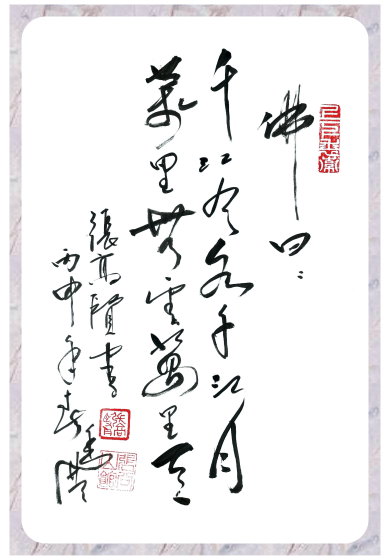 佛曰：
千江有水千江月
萬里無雲萬里天
張高賢書
丙申年春